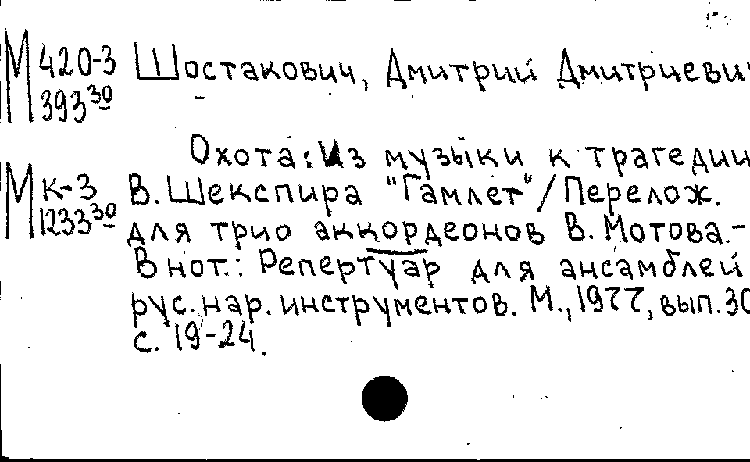 М 420-3 Шостакович, Дмитрий Дмитриеви
393 30
Охота: Из музыки к трагедии
М к-3 В. Шекспира "Гамлет" / Перелож.
1233 30 для трио аккордеонов В. Мотова.-
В нот.: Репертуар для ансамблей
рус. нар. инструментов. М., 1977, вып. 30
с. 19-24.